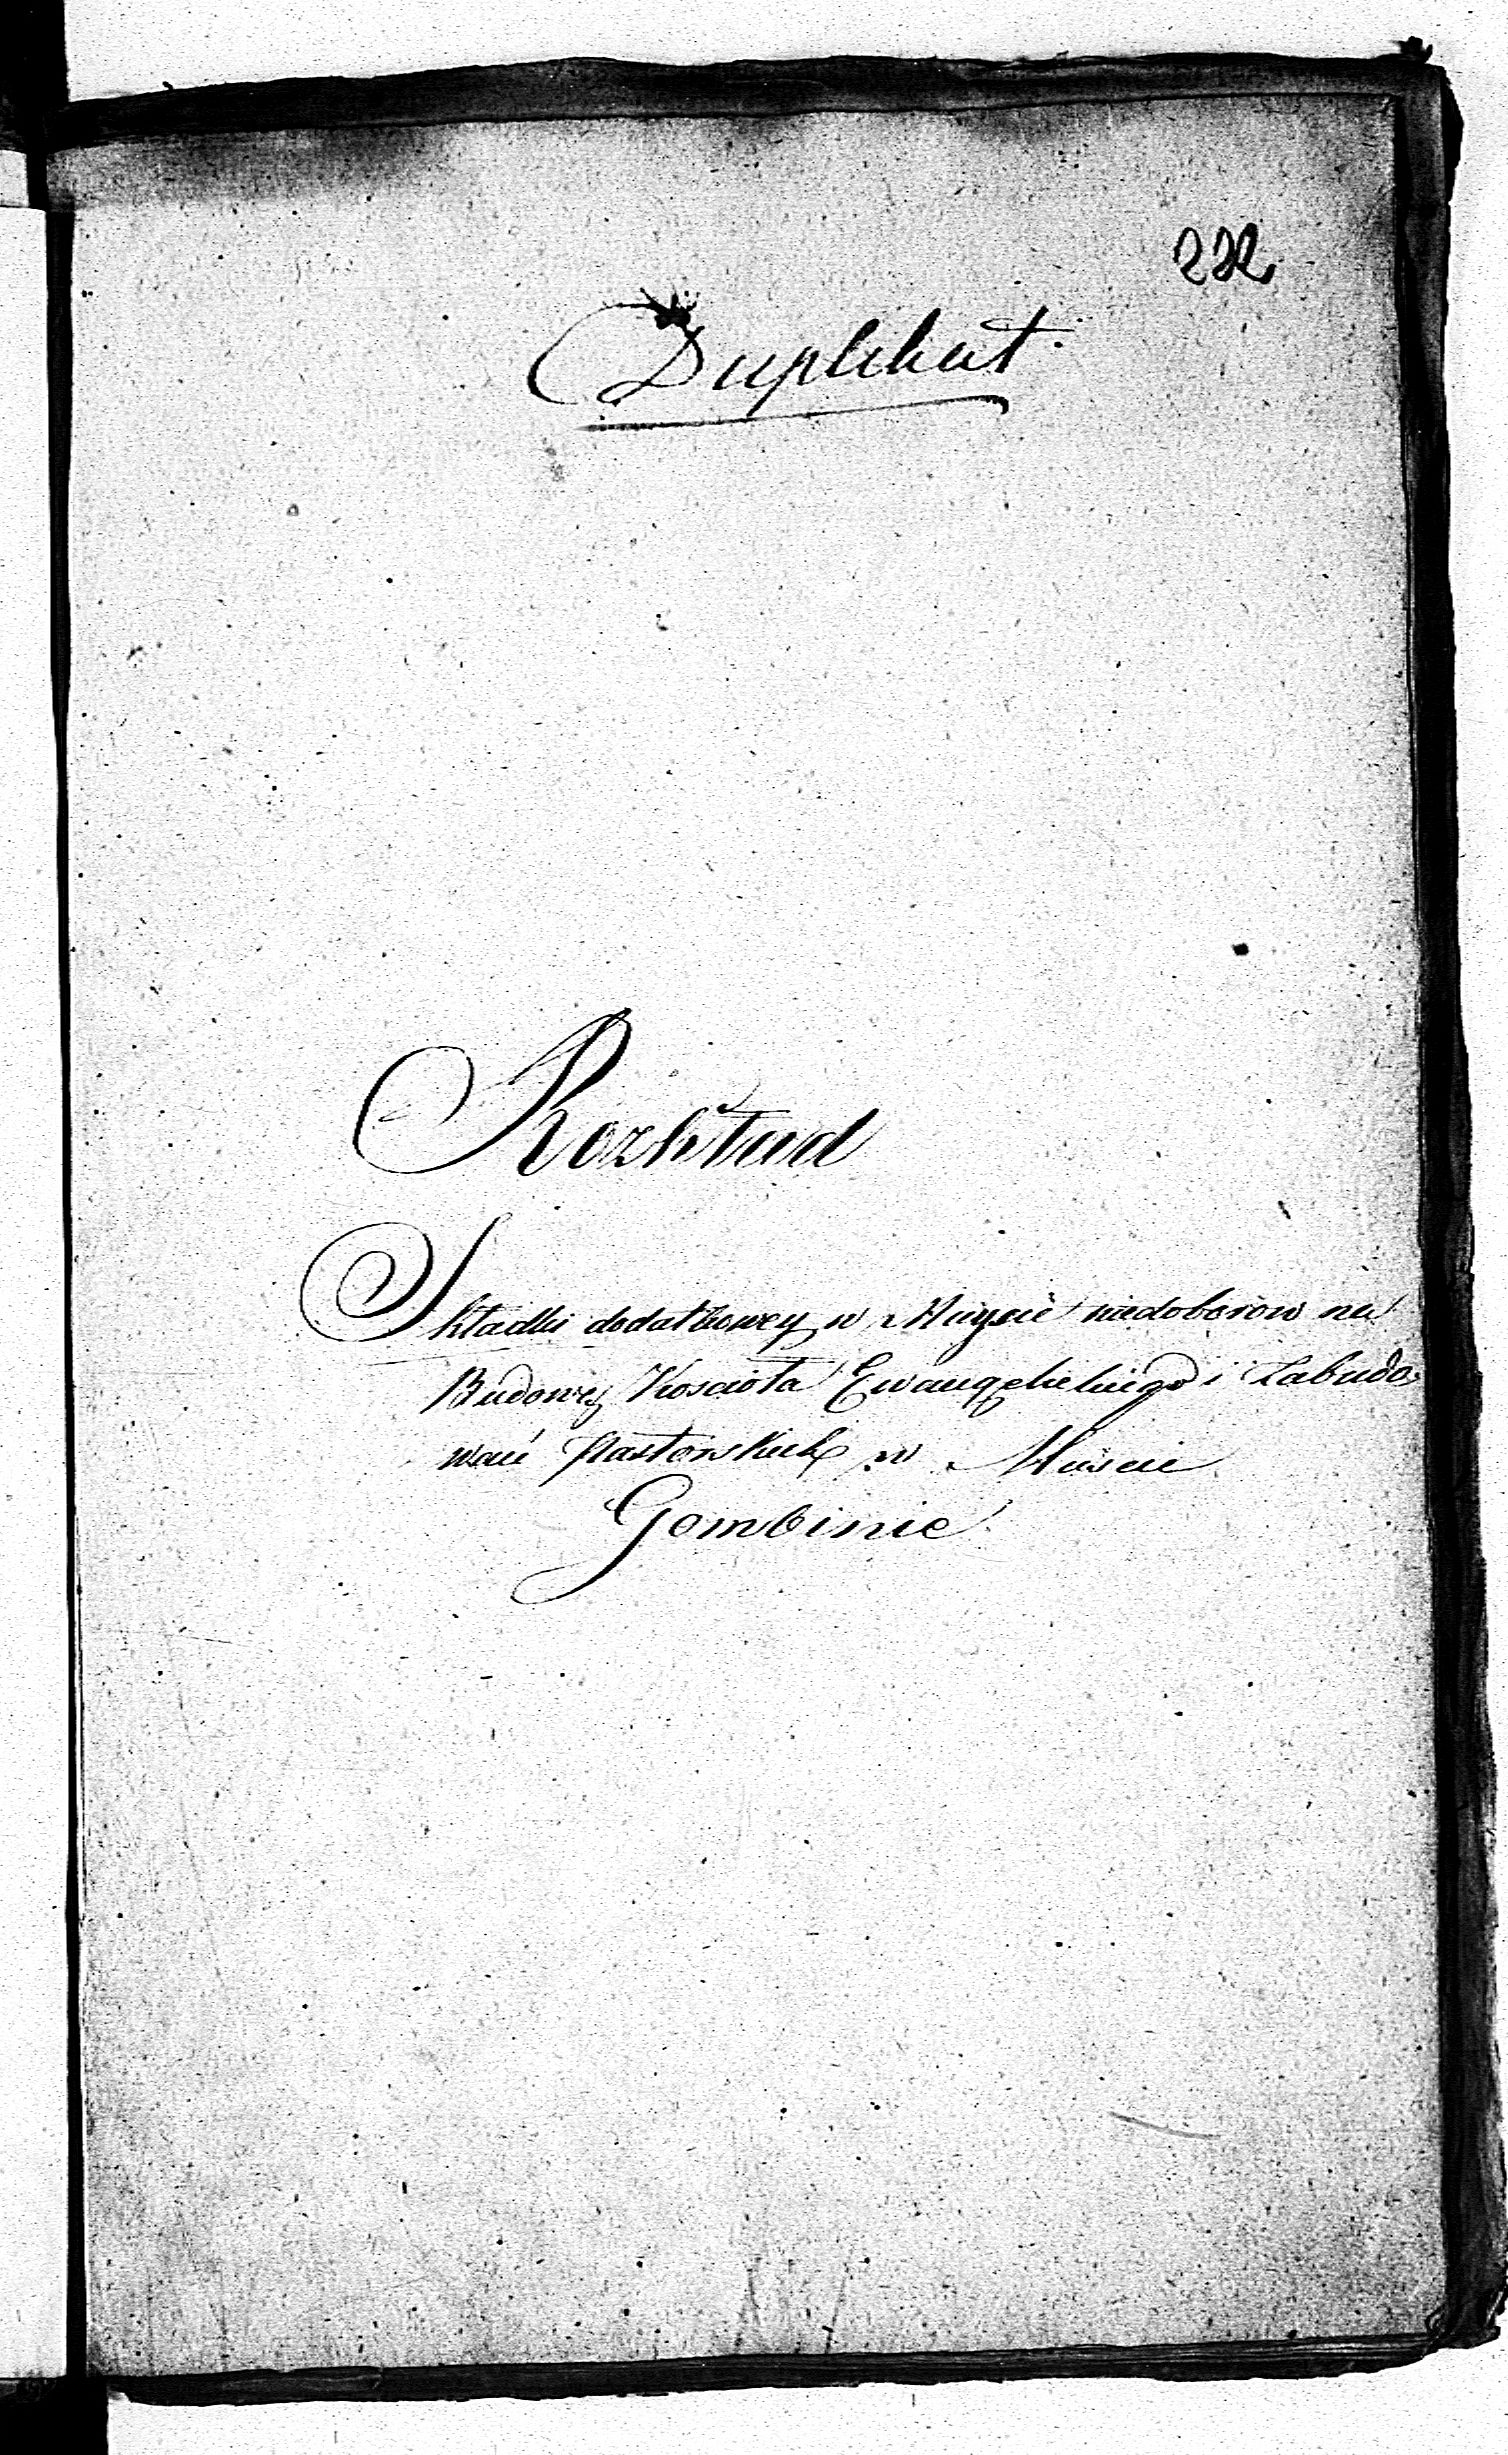 232
Duplikat.
Rozkład
Składki dodatkowey w Mieyscie niedoborow na
Budowę Koscioła Ewangelickiego i Zabudo-
wań Pastorskich w Miescie
Gombinie